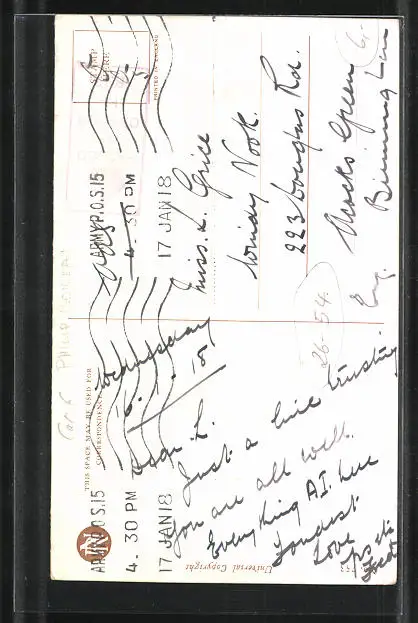 THIS SPACE MAY BE USED FOR
CORRESPONDENCE
ARMY P.O.S.15
4. 30 PM
17 JAN 18
Wednesday
16.1.18
Dear L.
Just a line trusting
you are all well.
Everything A1. here
Fondest
Love
STAMP
HERE
PRINTED IN ENGLAND
ARMY P.O.S.15
4. 30 PM
17 JAN 18
Miss. L. Grice
Windy Nook.
223 Douglas Rd.
Acocks Green
Birmingham
Eng.
26-54.
Universal Copyright